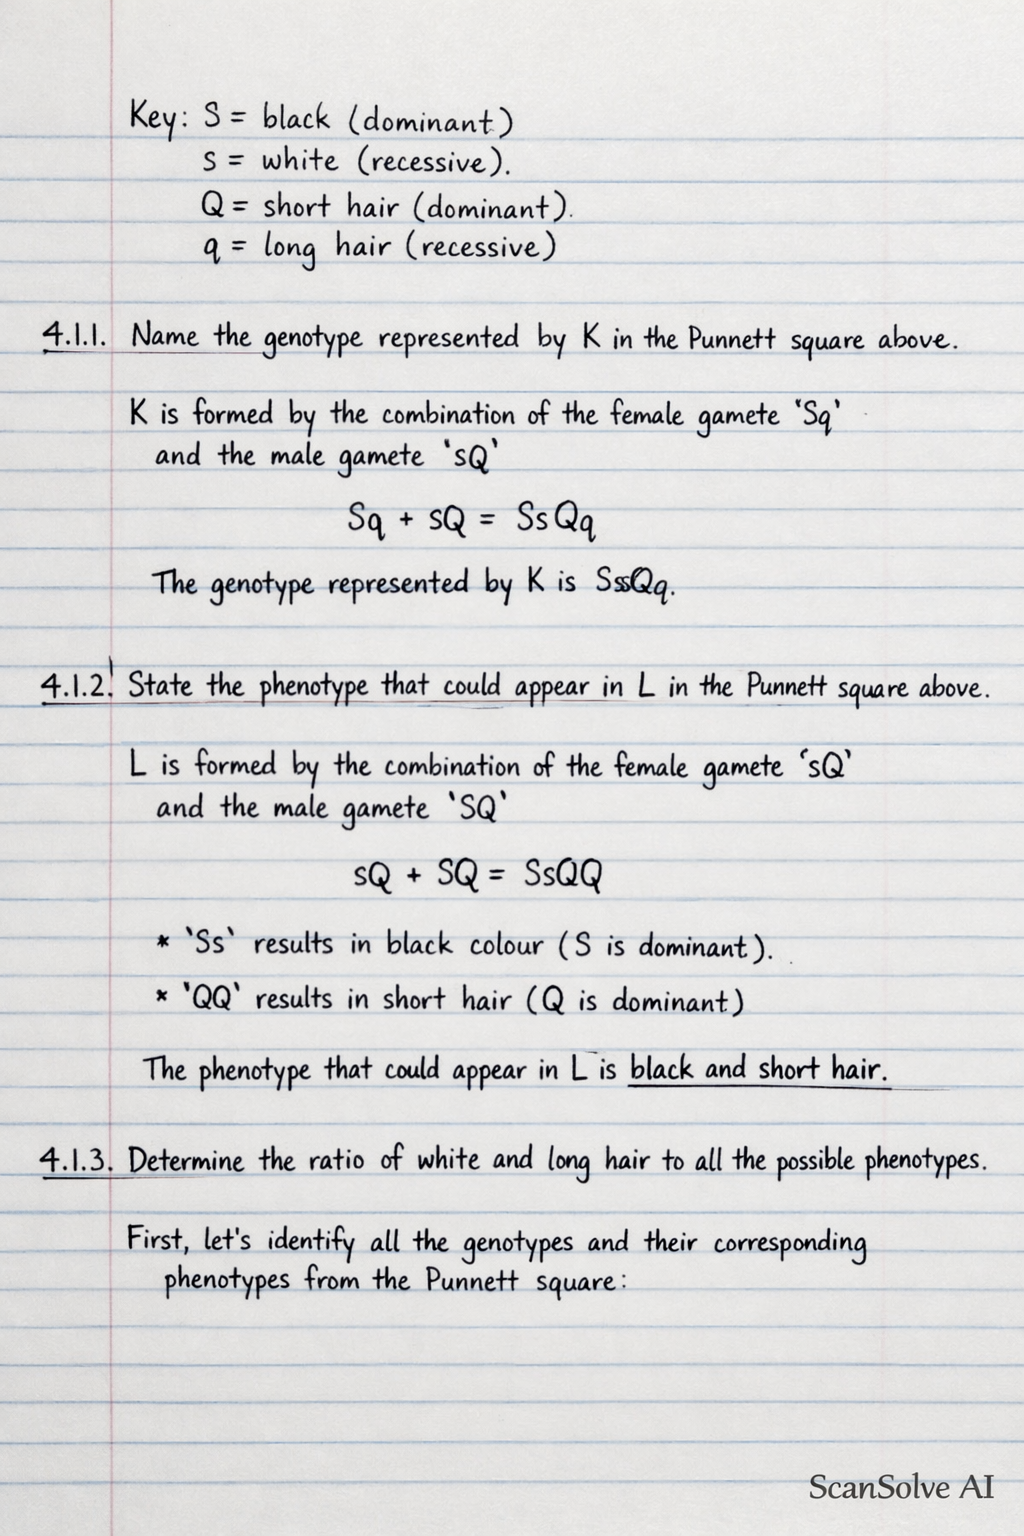 Key: S = black (dominant)
s = white (recessive).
Q = short hair (dominant).
q = long hair (recessive)
4.1.1. Name the genotype represented by K in the Punnett square above.
K is formed by the combination of the female gamete 'Sq'
and the male gamete 'sQ'
Sq + sQ = SsQq
The genotype represented by K is SssQq.
4.1.2. State the phenotype that could appear in L in the Punnett square above.
L is formed by the combination of the female gamete 'sQ'
and the male gamete 'SQ'
sQ + SQ = SsQQ
* 'Ss' results in black colour (S is dominant).
* 'QQ' results in short hair (Q is dominant)
The phenotype that could appear in L is black and short hair.
4.1.3. Determine the ratio of white and long hair to all the possible phenotypes.
First, let's identify all the genotypes and their corresponding
phenotypes from the Punnett square:
ScanSolve AI